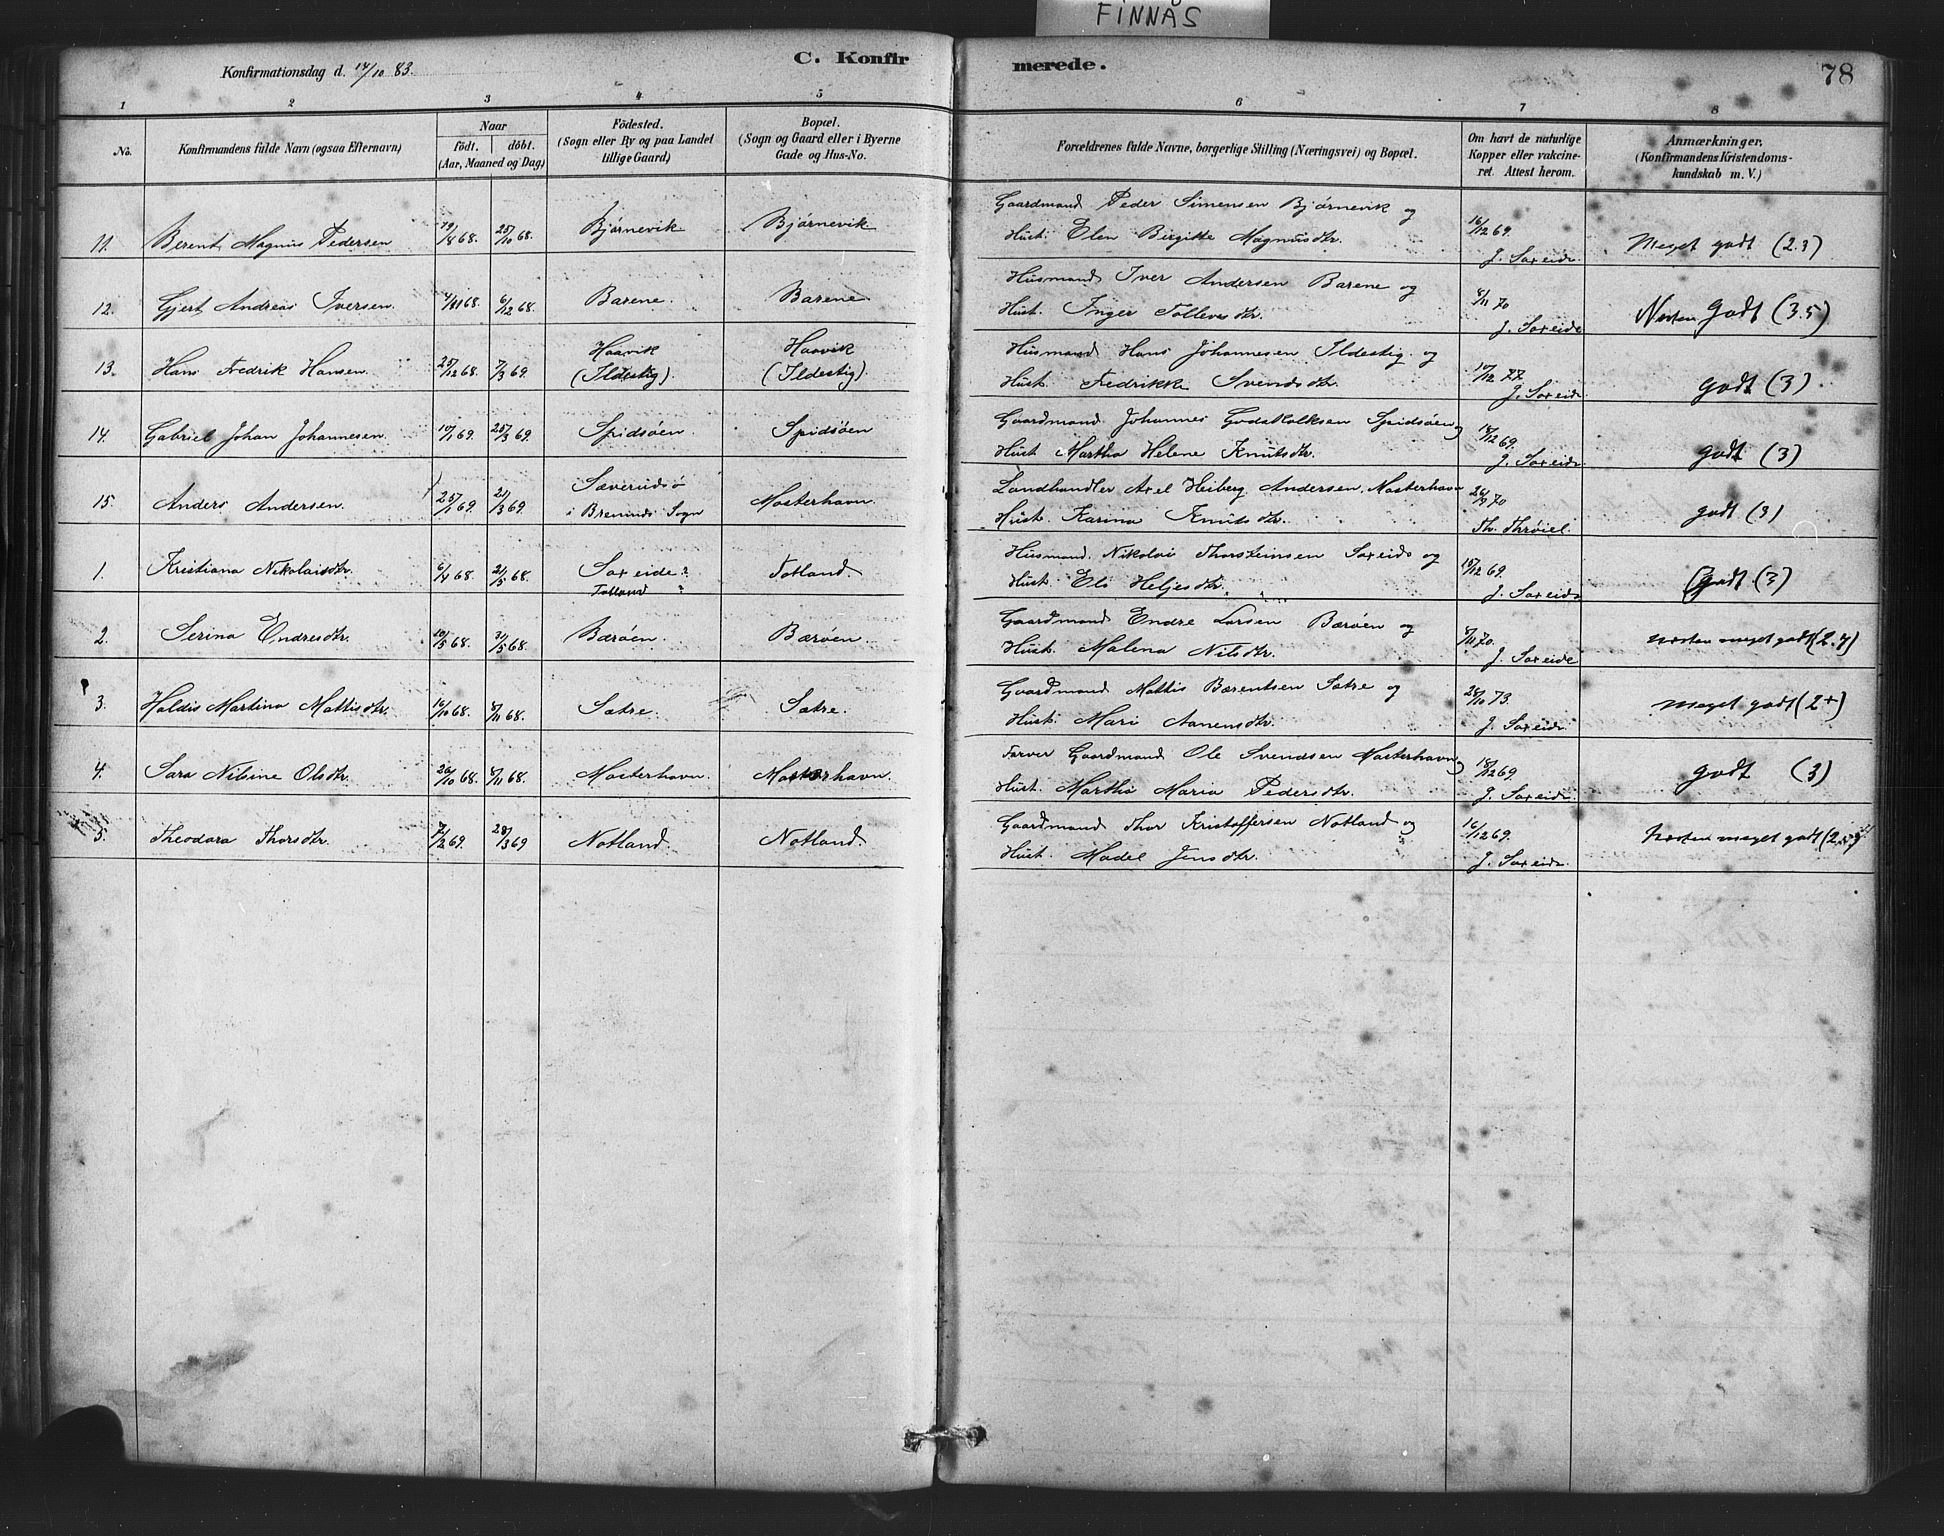 FINNÅS
Konfirmationsdag d. 14/10 83.
C. Konfirmerede.
78
1 2 3 4 5 6 7 8
No.
Konfirmandens fulde Navn (ogsaa Efternavn)
Naar
födt. döbt.
(Aar, Maaned og Dag)
Födested.
(Sogn eller By og paa Landet
tillige Gaard)
Bopæl.
(Sogn og Gaard eller i Byerne
Gade og Hus-No.
Forældrenes fulde Navne, borgerlige Stilling (Næringsvei) og Bopæl.
Om havt de naturlige
Kopper eller vakcine-
ret. Attest herom.
Anmærkninger,
(Konfirmandens Kristendoms-
kundskab m. V.)
11. Berent Magnus Pedersen 19/8 68. 25/10 68. Bjørnevik Bjørnevik
Gaardmand Peder Simensen Bjørnevik og
Hust. Elen Birgitte Magnusdtr.
16/12 69. J. Sæxeide
Meget godt (2.3)
12. Gjert Andreas Iversen. 4/11 68. 6/12 68. Barene. Barene
Husmand Iver Andersen Barene og
Hust. Inger Tollevsdtr.
8/11 70 J. Sæxeide
Næsten godt (3.5)
13. Hans Fredrik Hansen. 25/12 68. 7/3 69. Haavik (Ildestig). Haavik (Ildestig).
Husmand Hans Johannesen Ildestig og
Hust. Fredrikke Svendsdtr.
17/12 77 J. Sæxeide
godt (3)
14. Gabriel Johan Johannesen. 10/1 69. 25/3 69. Spidsøen. Spidsøen
Gaardmand Johannes Godskalksen Spidsøen og
Hust. Martha Helene Knutsdtr.
18/12 69. J. Sæxeide
godt (3)
15. Anders Andersen. 25/1 69. 21/3 69. Sæverudsø i Bremnes Sogn Mosterhavn.
Landhandler Axel Heiberg Andersen, Mosterhavn
Hust. Karina Knutsdtr.
26/9 70
godt (3)
1. Kristiana Nikolaisdtr. 6/4 68. 21/5 68. Sæxeide Totland Totland.
Husmand Nikolai Thorsteinsen Sæxeide og
Hust. Eli Heljesdtr.
18/12 69. J. Sæxeide
godt (3)
2. Serina Endresdtr. 10/5 68. 31/5 68. Bærøen. Bærøen.
Gaardmand Endre Larsen Bærøen og
Hust. Malena Nilsdtr.
8/11 70. J. Sæxeide
næsten meget godt (2.7)
3. Haldis Martina Mattisdtr. 16/10 68. 8/11 68. Sætre. Sætre.
Gaardmand Mattis Bærentsen Sætre og
Hust. Mari Aanensdtr.
28/10 73. J. Sæxeide
meget godt (2+)
4. Sara Nilsine Olsdtr. 20/10 68. 8/11 68. Mosterhavn. Mosterhavn.
Farver Gaardmand Ole Svendsen Mosterhavn og
Hust. Martha Maria Pedersdtr.
18/12 69. J. Sæxeide.
godt (3)
5. Theodora Thorsdtr. 7/2 69. 28/3 69 Notland. Notland.
Gaardmand Thor Kristoffersen Notland og
Hust. Madel Jensdtr.
16/12 69. J. Sæxeide.
næsten meget godt